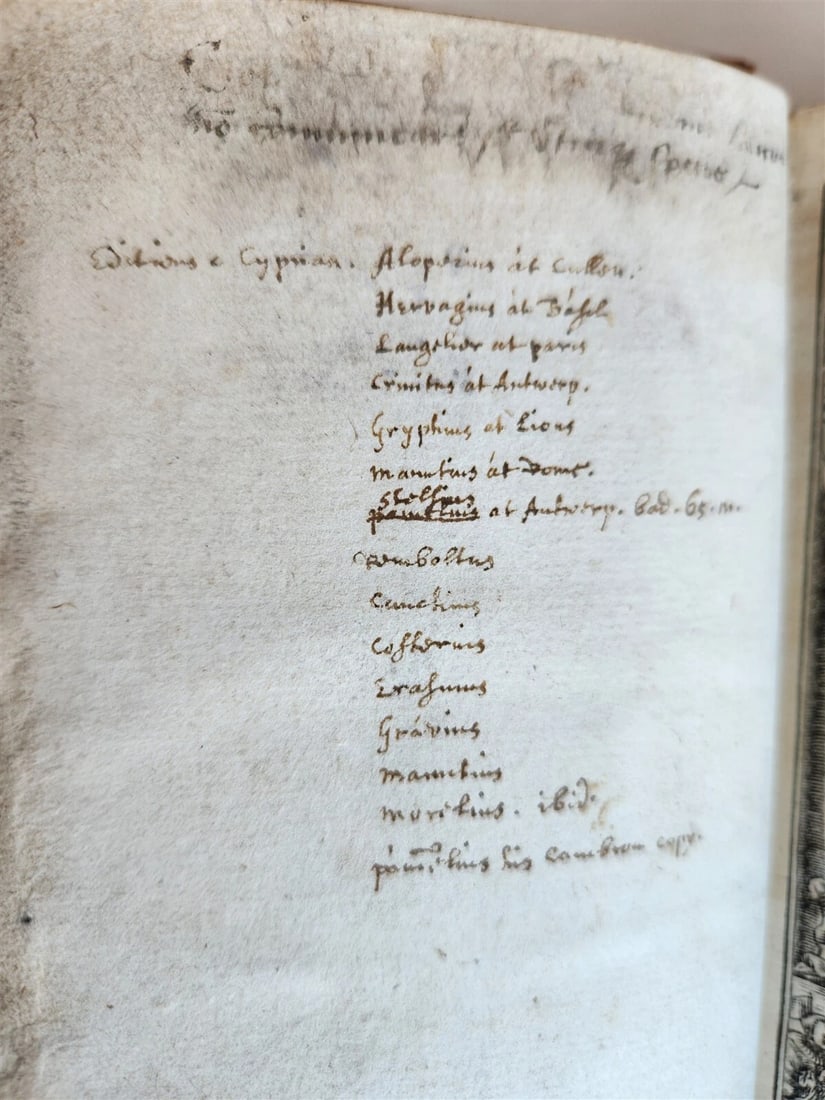 nō cōmunicar
Editions e Cyprian. Alopecius at Cullen.
Hervagius at Basel
Langelier at paris
Crinitus at Antwerp.
Gryphius at Lions
Manutius at Rome.
Stelsius
pamelius at Antwerp. bad. 65.
Remboltus
Cauchius
Costerius
Erasmus
Gravius
Manutius
Morelius. ibid.
pamelius his Cambron copy.